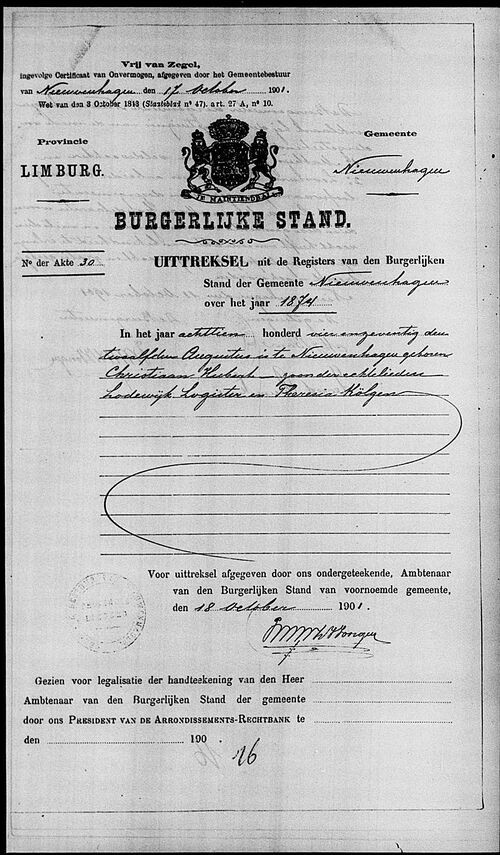 Vrij van Zegel,
ingevolge Certificaat van Onvermogen, afgegeven door het Gemeentebestuur
van Nieuwenhagen den 17 October 1901.
Wet van den 3 October 1843 (Staatsblad nº 47). art. 27 A, nº 10.
Provincie
LIMBURG.
Gemeente
Nieuwenhagen
JE MAINTIENDRAI
BURGERLIJKE STAND.
Nº der Akte 30
UITTREKSEL uit de Registers van den Burgerlijken
Stand der Gemeente Nieuwenhagen
over het jaar 1874
In het jaar achttien honderd vier en zeventig den
twaalfden Augustus is te Nieuwenhagen geboren
Christiaan Hubert zoon der echtelieden
Lodewijk Logister en Theresia Kölgen
Voor uittreksel afgegeven door ons ondergeteekende, Ambtenaar
van den Burgerlijken Stand van voornoemde gemeente,
den 18 October 1901.
Gezien voor legalisatie der handteekening van den Heer
Ambtenaar van den Burgerlijken Stand der gemeente
door ons PRESIDENT VAN DE ARRONDISSEMENTS-RECHTBANK te
den 190
16